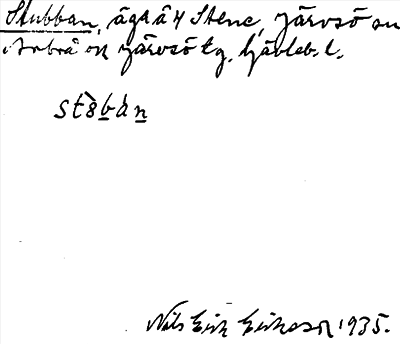 Stubban, äga å 4 Stene, Järvsö sn
Arbrå ok Järvsö tg. Gävleb. l.
stòban
Nils Erik Erikson 1935.